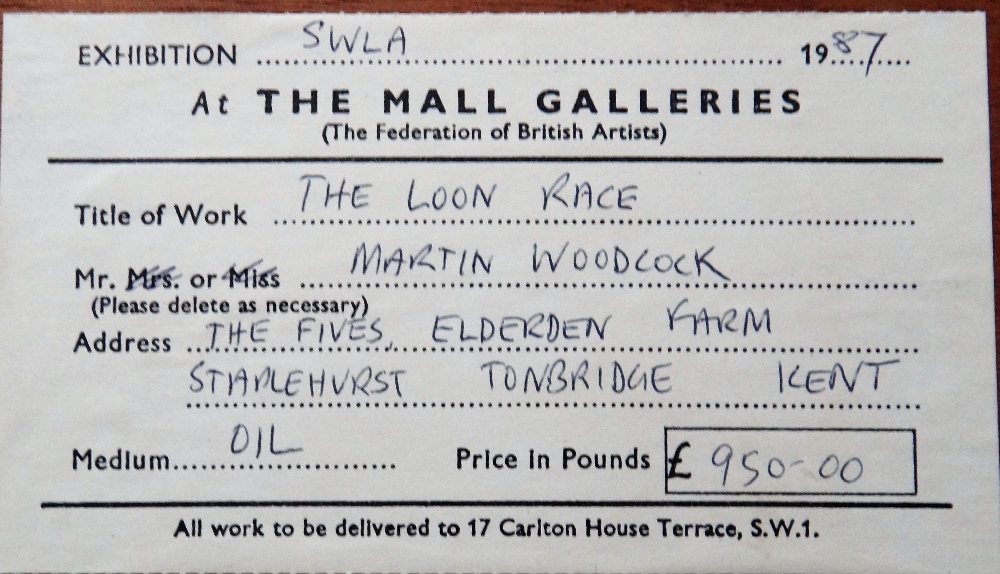 EXHIBITION SWLA 1987
At THE MALL GALLERIES
(The Federation of British Artists)
Title of Work THE LOON RACE
Mr. Mrs. or Miss MARTIN WOODCOCK
(Please delete as necessary)
Address THE FIVES, ELDERDEN FARM
STAPLEHURST TONBRIDGE KENT
Medium OIL Price in Pounds £ 950-00
All work to be delivered to 17 Carlton House Terrace, S.W.1.